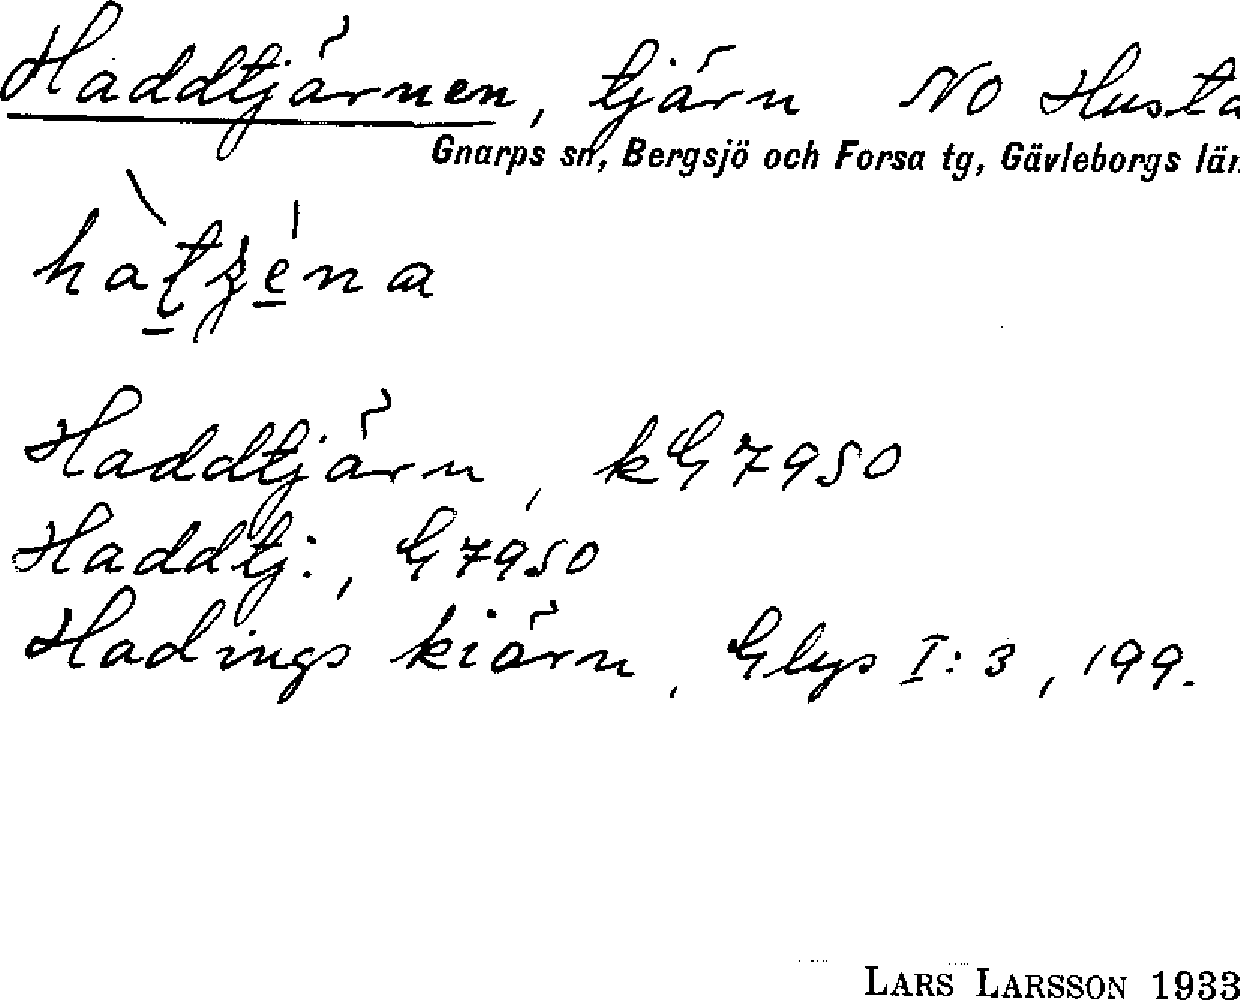 Haddtjärnen, tjärn NO Husta
Gnarps sn, Bergsjö och Forsa tg, Gävleborgs län
Haddtjärn, kG 7950
Haddtj:, G 7950
Hadings kiärn, Glys I:3, 199.
LARS LARSSON 1933